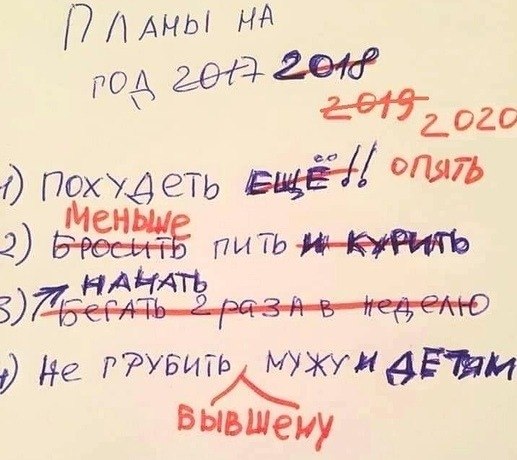 Планы на
год 2017 2018
2019 2020
1) похудеть ЕЩЁ!! опять
Меньше
2) бросить пить и курить
НАЧАТЬ
3) бегать 2 раза в неделю
4) не грубить мужу и детям
бывшему